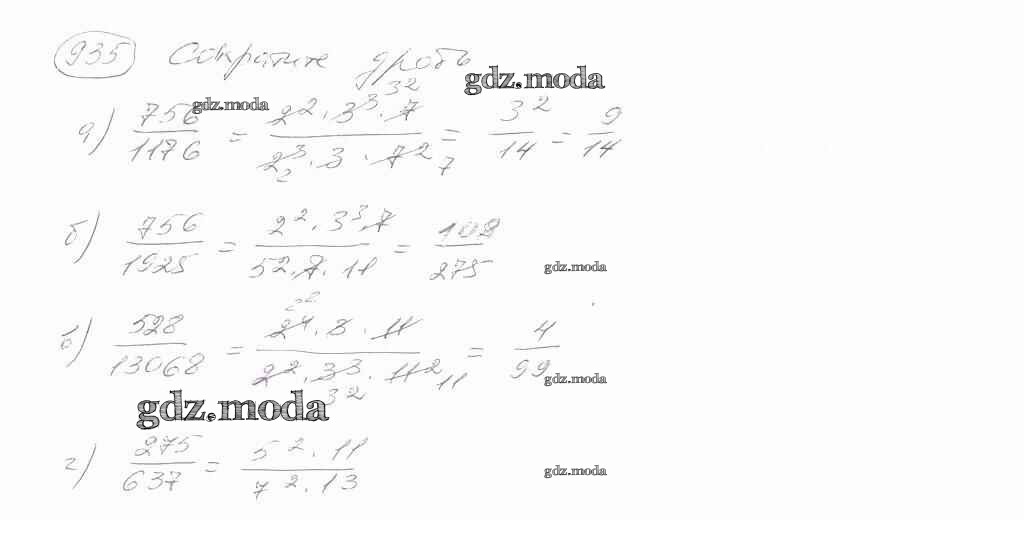 935 Сократите дробь
gdz.moda
а) 756/1176 = 2²·3³·7/2³·3·7² = 3²/14 = 9/14
gdz.moda
б) 756/1925 = 2²·3³·7/5²·7·11 = 108/275
gdz.moda
в) 528/13068 = 2⁴·3·11/2²·3³·11² = 4/99
gdz.moda
gdz.moda
г) 275/637 = 5²·11/7²·13
gdz.moda